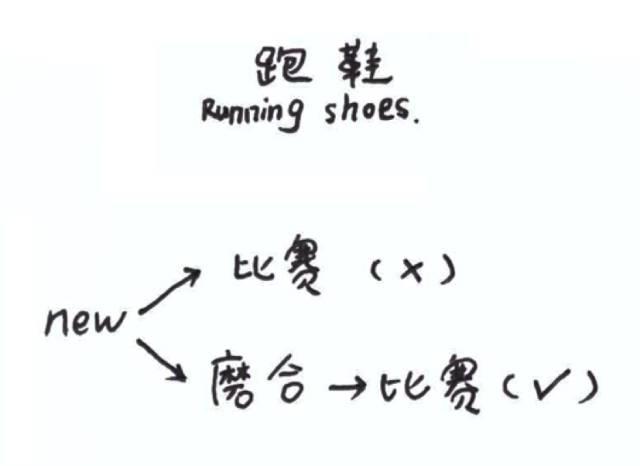 跑鞋
Running shoes.
比赛 (×)
new
磨合→比赛(√)